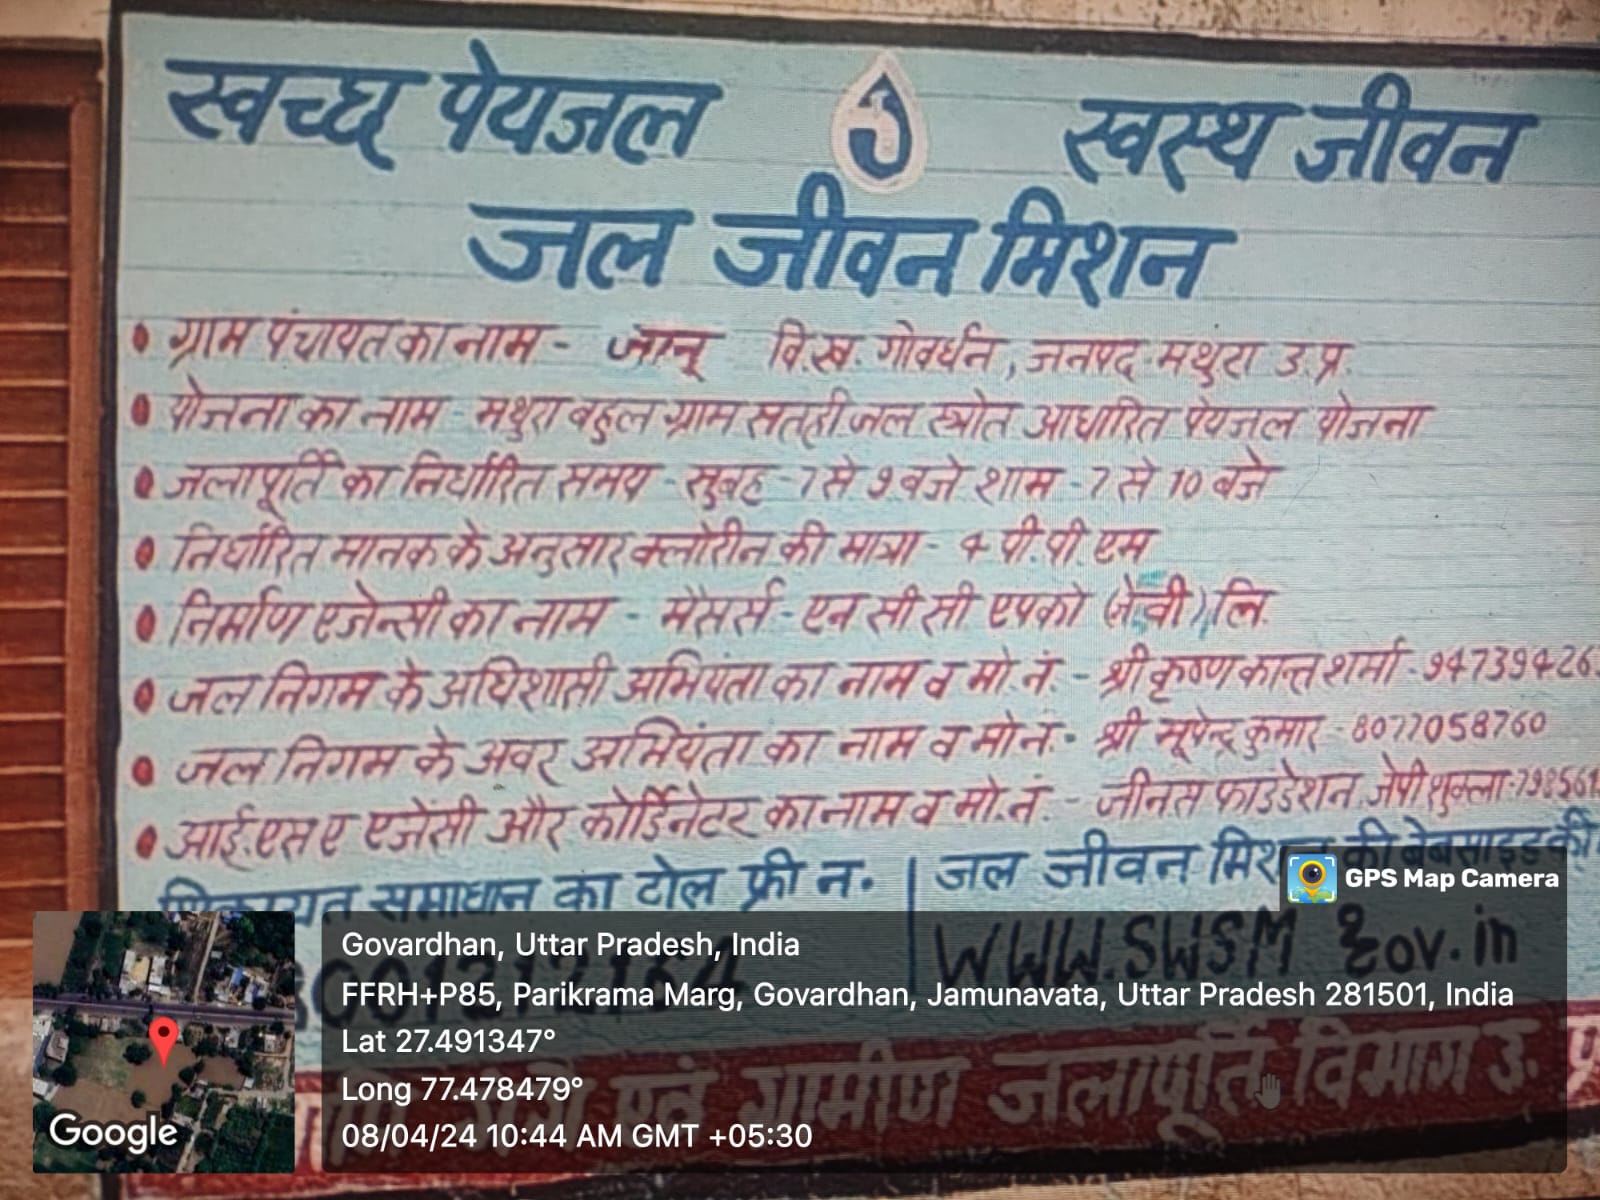 स्वच्छ पेयजल स्वस्थ जीवन
जल जीवन मिशन
ग्राम पंचायत का नाम - जानू वि.ख. गोवर्धन, जनपद मथुरा उ.प्र.
योजना का नाम - मथुरा बहुल ग्राम सतही जल स्त्रोत आधारित पेयजल योजना
जलापूर्ति का निर्धारित समय - सुबह - 7 से 9 बजे शाम - 7 से 10 बजे
निर्धारित मानक के अनुसार क्लोरीन की मात्रा - 4 पी.पी.एम
निर्माण एजेन्सी का नाम - मैसर्स - एन सी सी एपको (जे.वी) लि.
जल निगम के अधिशासी अभियंता का नाम व मो.नं. - श्री कृष्ण कान्त शर्मा - 947394263
जल निगम के अवर अभियंता का नाम व मो.नं. - श्री सूपेन्द्र कुमार - 8077058760
आई.एस ए एजेंसी और कोर्डिनेटर का नाम व मो.नं. - जीनस फाउंडेशन, जेपी शुक्ला - 798561
शिकायत समाधान का टोल फ्री न. | जल जीवन मिशन की बेबसाइड की
WWW.SWSM gov.in
एवं ग्रामीण जलापूर्ति विभाग उ. प्र
GPS Map Camera
Govardhan, Uttar Pradesh, India
FFRH+P85, Parikrama Marg, Govardhan, Jamunavata, Uttar Pradesh 281501, India
Lat 27.491347°
Long 77.478479°
08/04/24 10:44 AM GMT +05:30
Google